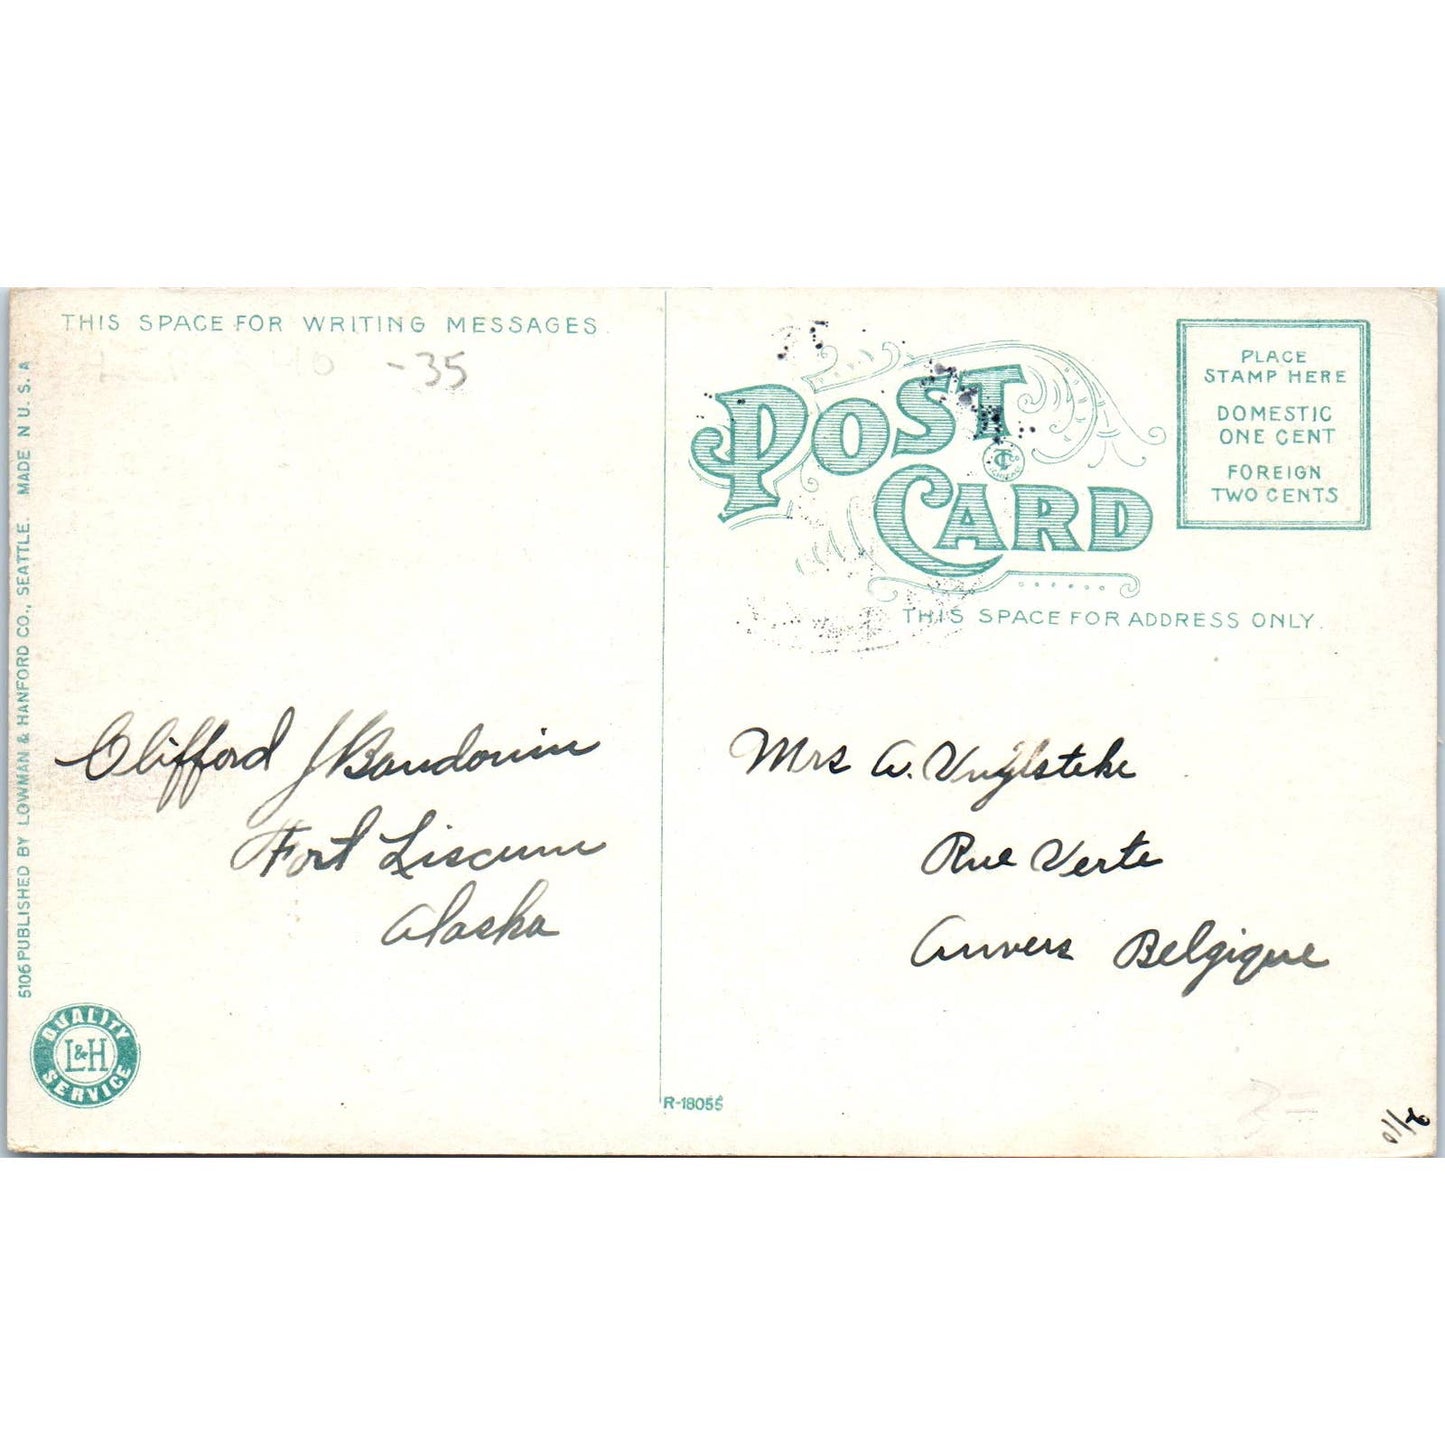 THIS SPACE FOR WRITING MESSAGES.
-35
5106 PUBLISHED BY LOWMAN & HANFORD CO., SEATTLE. MADE N U.S.A
Clifford J Baudouin
Fort Liscum
Alaska
QUALITY
L&H
SERVICE
R-18055
POST
CARD
THIS SPACE FOR ADDRESS ONLY.
PLACE
STAMP HERE
DOMESTIC
ONE CENT
FOREIGN
TWO CENTS
Mrs A. Vuylsteke
Rue Verte
Anvers Belgique